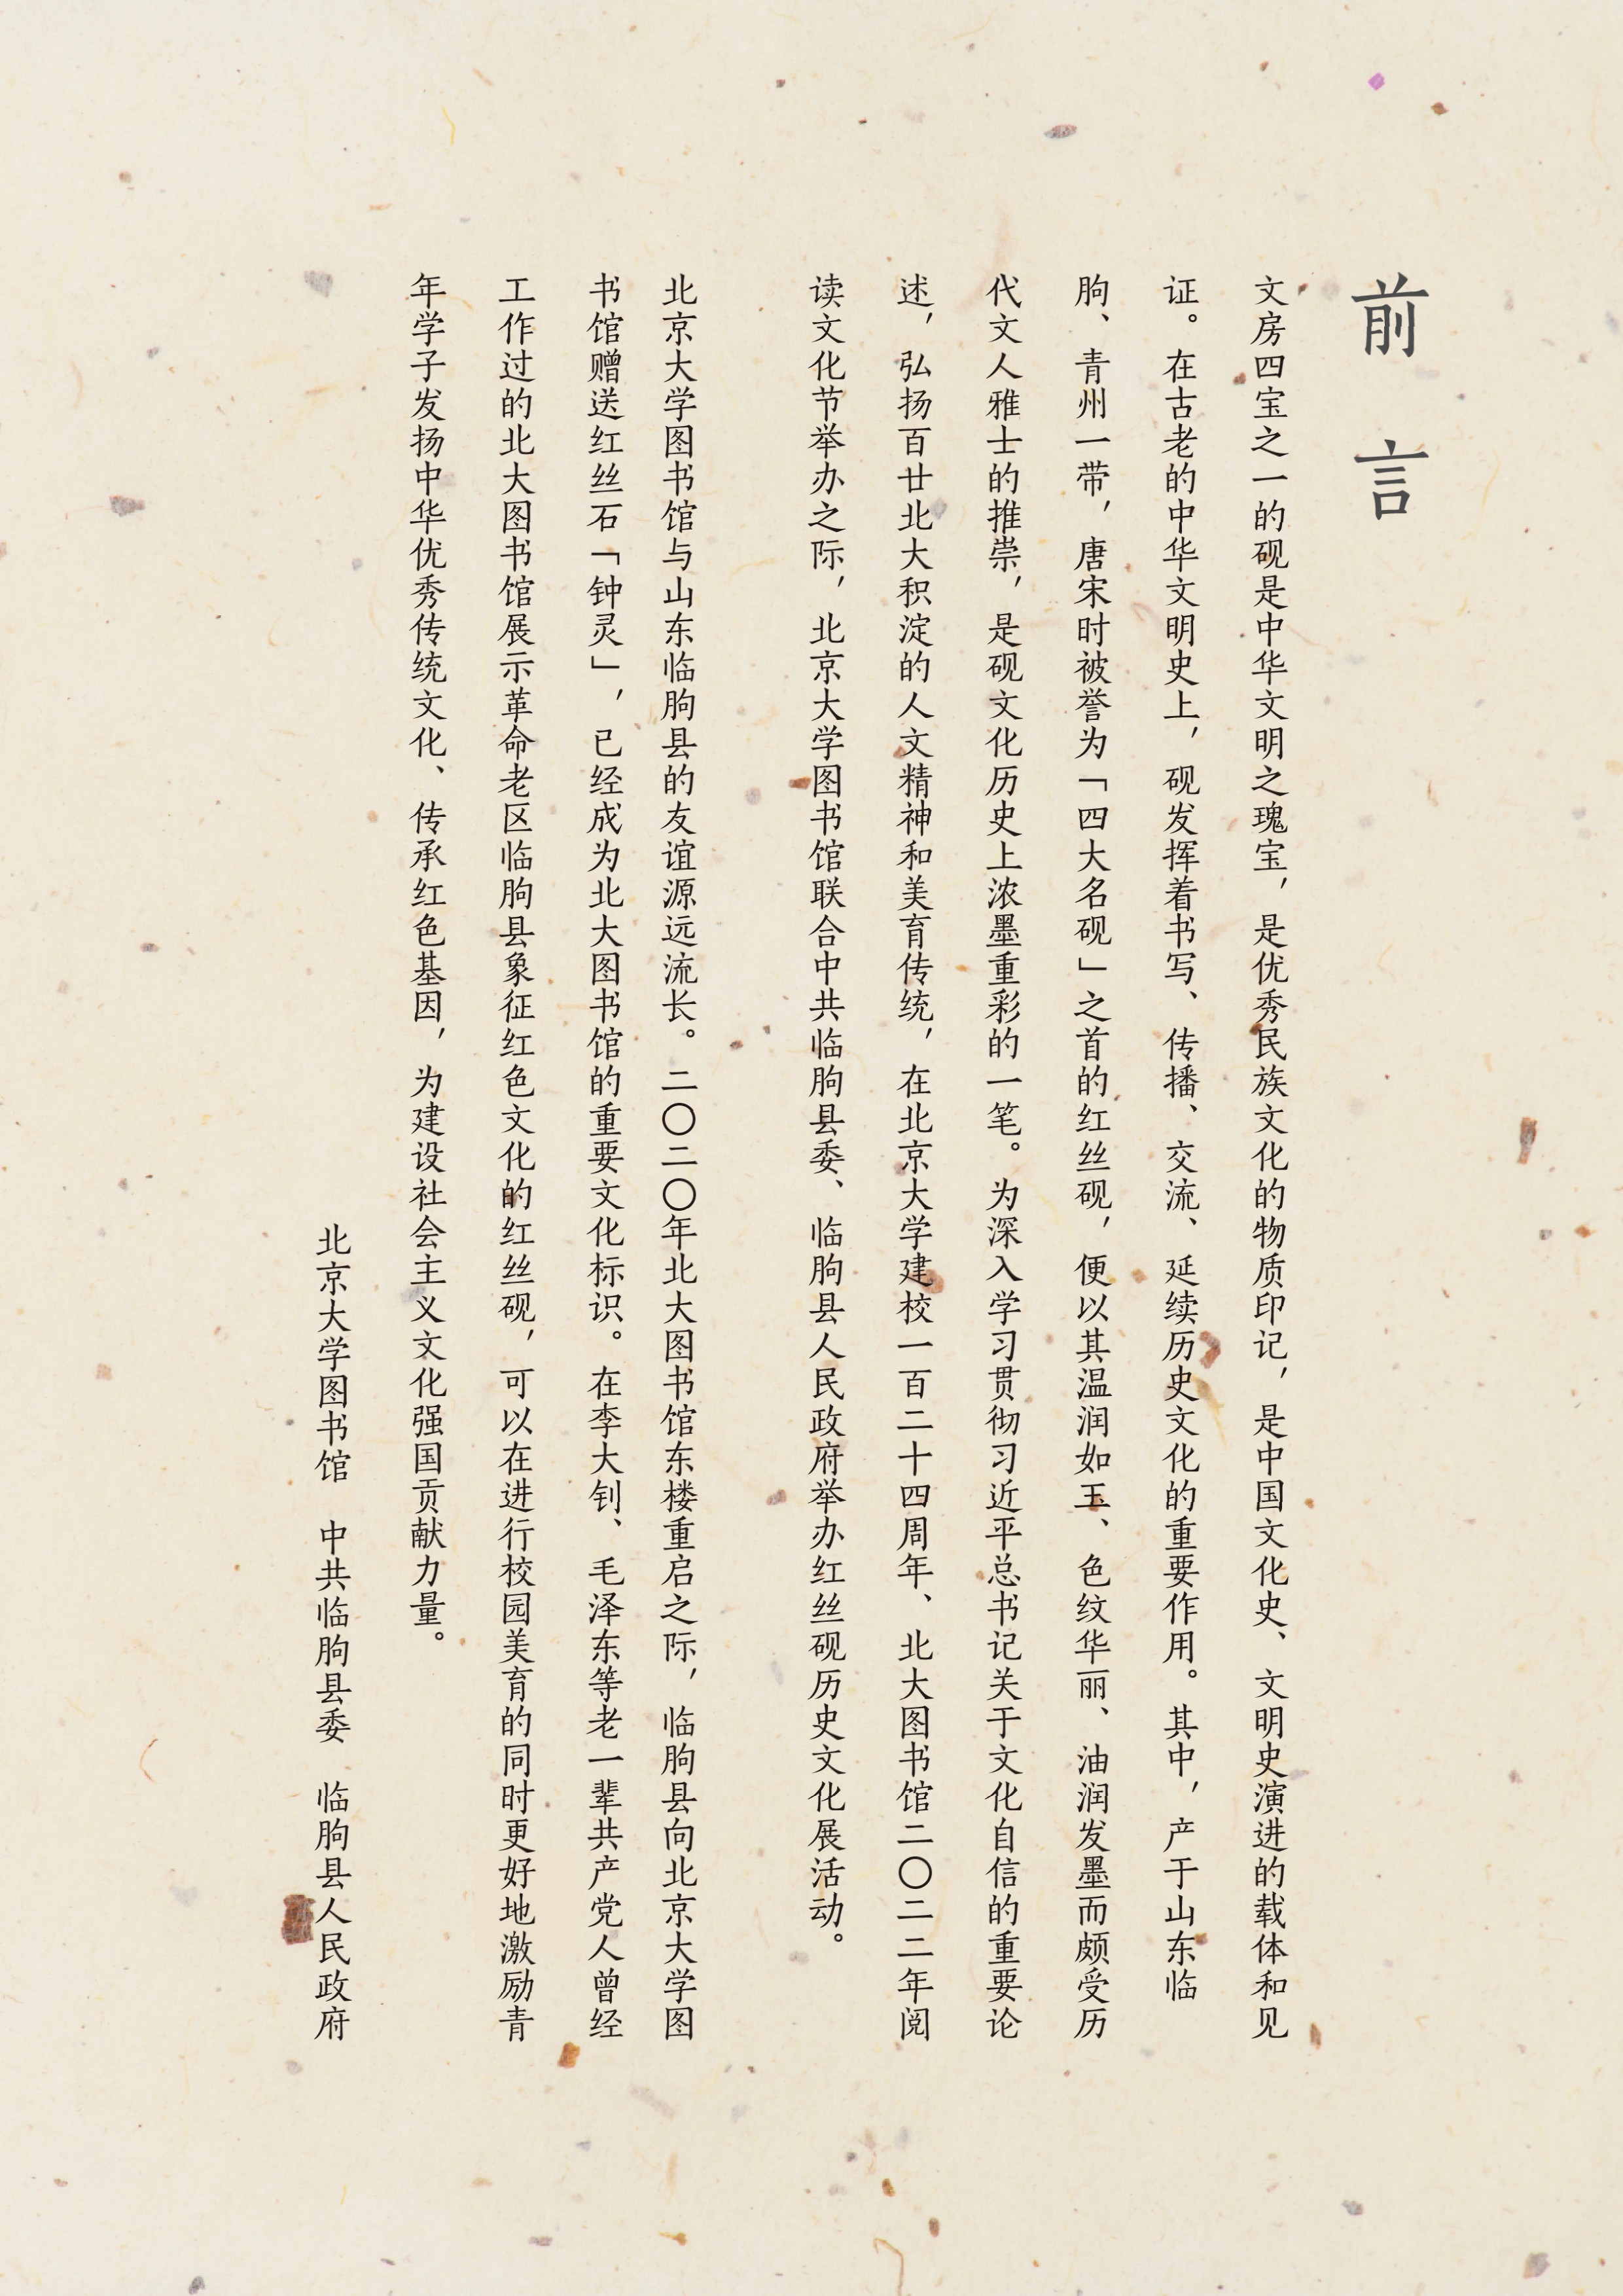 前言
文房四宝之一的砚是中华文明之瑰宝，是优秀民族文化的物质印记，是中国文化史、文明史演进的载体和见
证。在古老的中华文明史上，砚发挥着书写、传播、交流、延续历史文化的重要作用。其中，产于山东临
朐、青州一带，唐宋时被誉为「四大名砚」之首的红丝砚，便以其温润如玉、色纹华丽、油润发墨而颇受历
代文人雅士的推崇，是砚文化历史上浓墨重彩的一笔。为深入学习贯彻习近平总书记关于文化自信的重要论
述，弘扬百廿北大积淀的人文精神和美育传统，在北京大学建校一百二十四周年、北大图书馆二〇二二年阅
读文化节举办之际，北京大学图书馆联合中共临朐县委、临朐县人民政府举办红丝砚历史文化展活动。
北京大学图书馆与山东临朐县的友谊源远流长。二〇二〇年北大图书馆东楼重启之际，临朐县向北京大学图
书馆赠送红丝石「钟灵」，已经成为北大图书馆的重要文化标识。在李大钊、毛泽东等老一辈共产党人曾经
工作过的北大图书馆展示革命老区临朐县象征红色文化的红丝砚，可以在进行校园美育的同时更好地激励青
年学子发扬中华优秀传统文化、传承红色基因，为建设社会主义文化强国贡献力量。
北京大学图书馆　中共临朐县委　临朐县人民政府